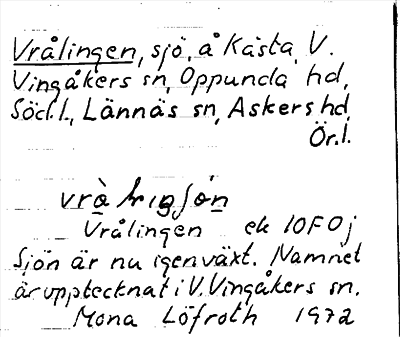 Vrålingen, sjö, å Kåsta, V.
Vingåkers sn, Oppunda hd,
Söd.l., Lännäs sn, Askers hd
Ör.l.
Vrålingen ek 10F0j
Sjön är nu igenväxt. Namnet
är upptecknat i V. Vingåkers sn.
Mona Löfroth 1972